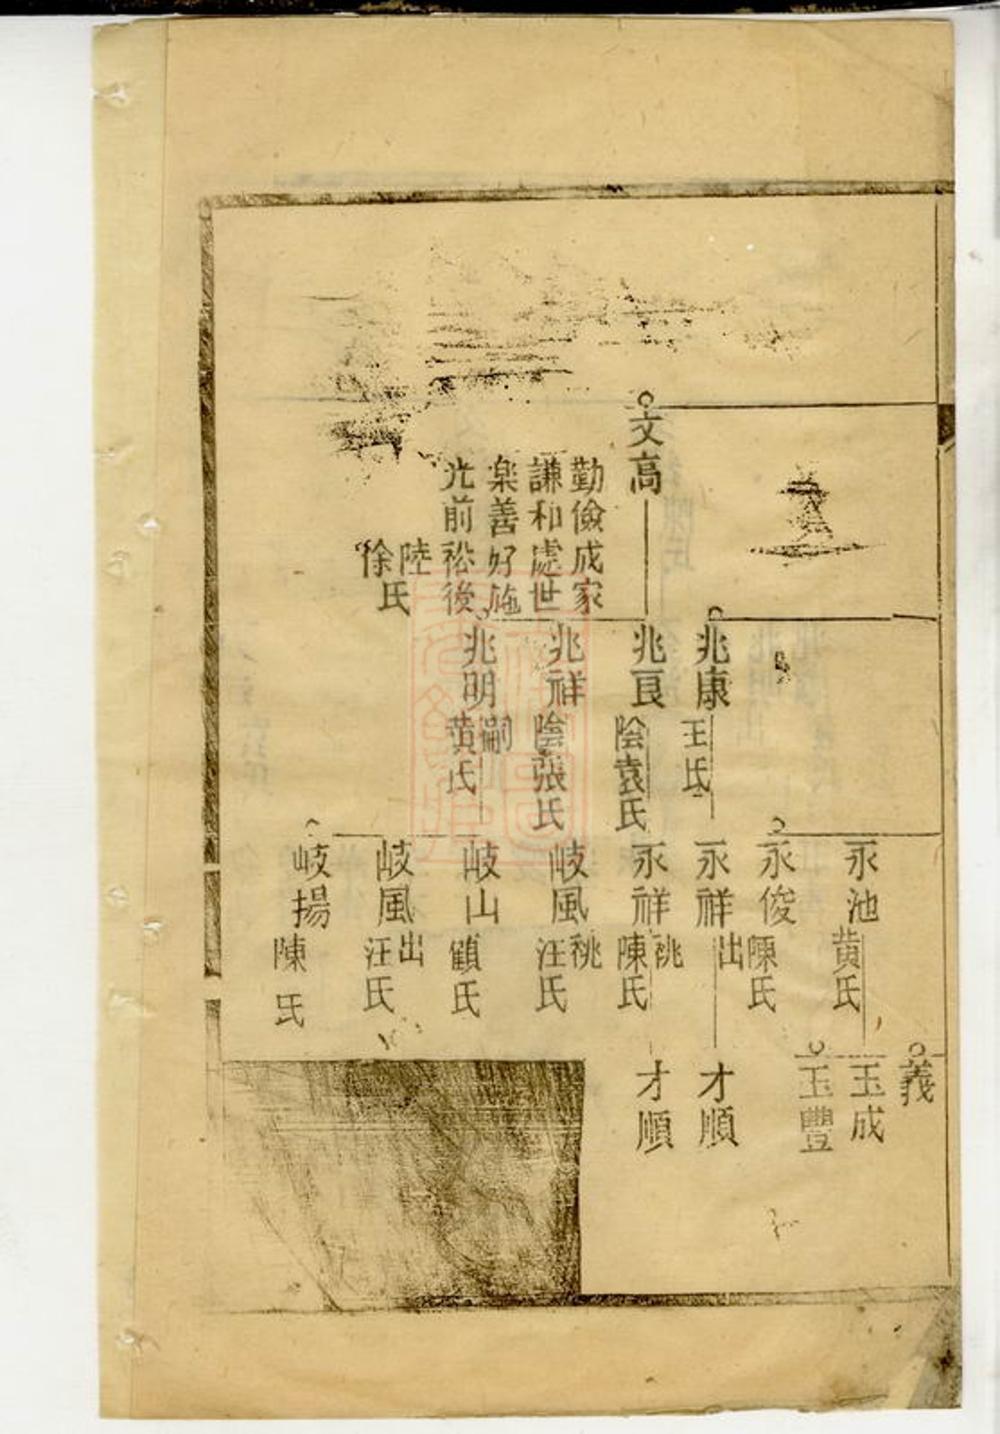 文高
勤儉成家
謙和處世
樂善好施
光前裕後
陸
徐氏
兆康
王氏
兆良
陰袁氏
兆祥
陰張氏
兆明
嗣
黄氏
永池
黄氏
永俊
陳氏
永祥
出
永祥
祧
陳氏
岐風
祧
汪氏
岐山
顧氏
岐風
出
汪氏
岐揚
陳氏
義
玉成
玉豐
才順
才順